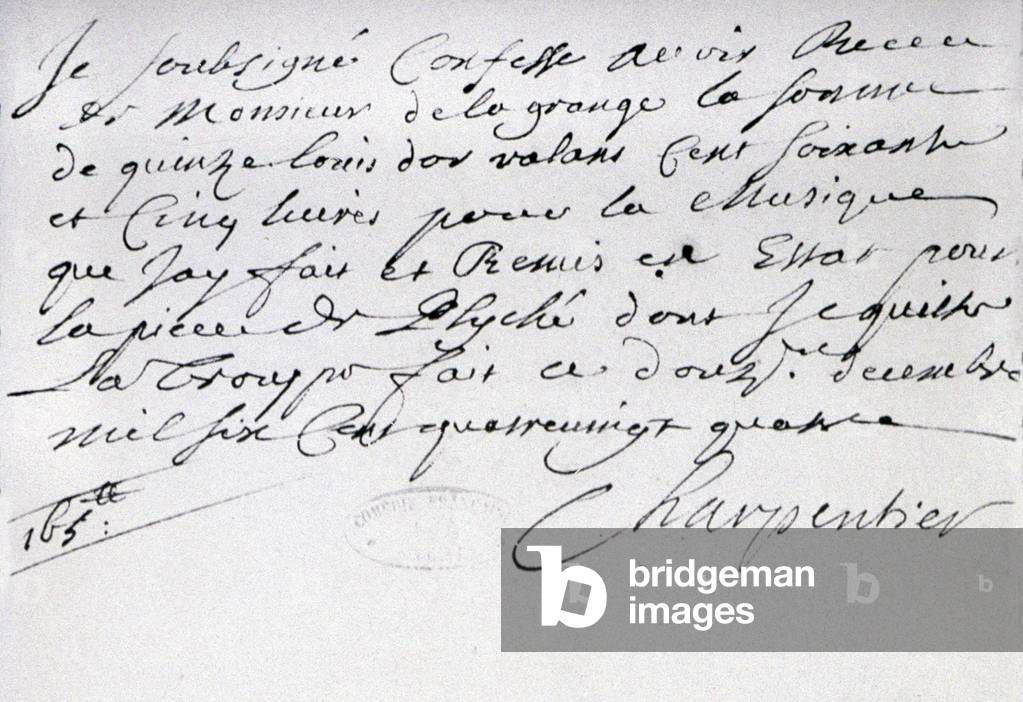 Je soubsigné Confesse avoir Receu
de Monsieur de la grange la somme
de quinze louis dor valans Cent soixante
et Cinq livres pour la Musique
que Jay fait et Remis en Estat pour
la piece de Psyché dont Je quitte
La Trouppe fait ce douze.me decembre
mil six Cent quatreuingt quatre
165.tt :
Charpentier
COMÉDIE
bridgeman
images